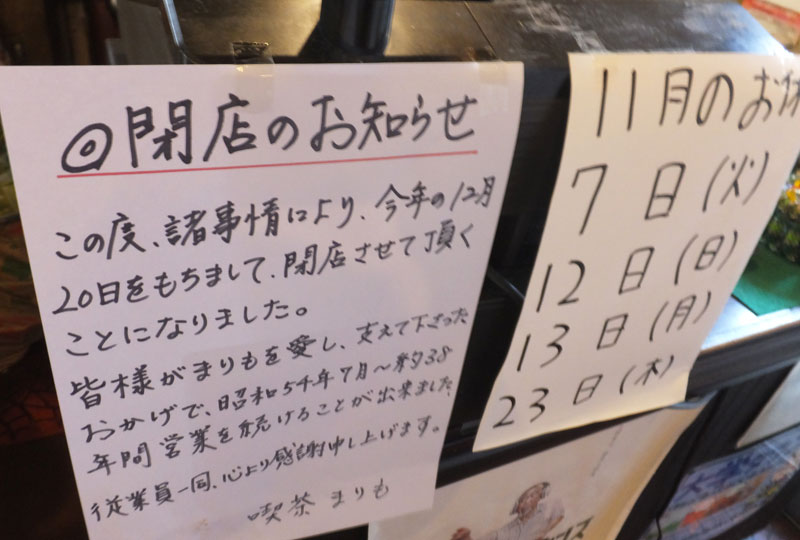 ◎閉店のお知らせ
この度、諸事情により、今年の12月
20日をもちまして、閉店させて頂く
ことになりました。
皆様がまりもを愛し、支えて下さった
おかげで、昭和54年7月〜約38
年間営業を続けることが出来ました
従業員一同、心より感謝申し上げます。
喫茶 まりも
11月のお休
7日(火)
12日(日)
13日(月)
23日(木)